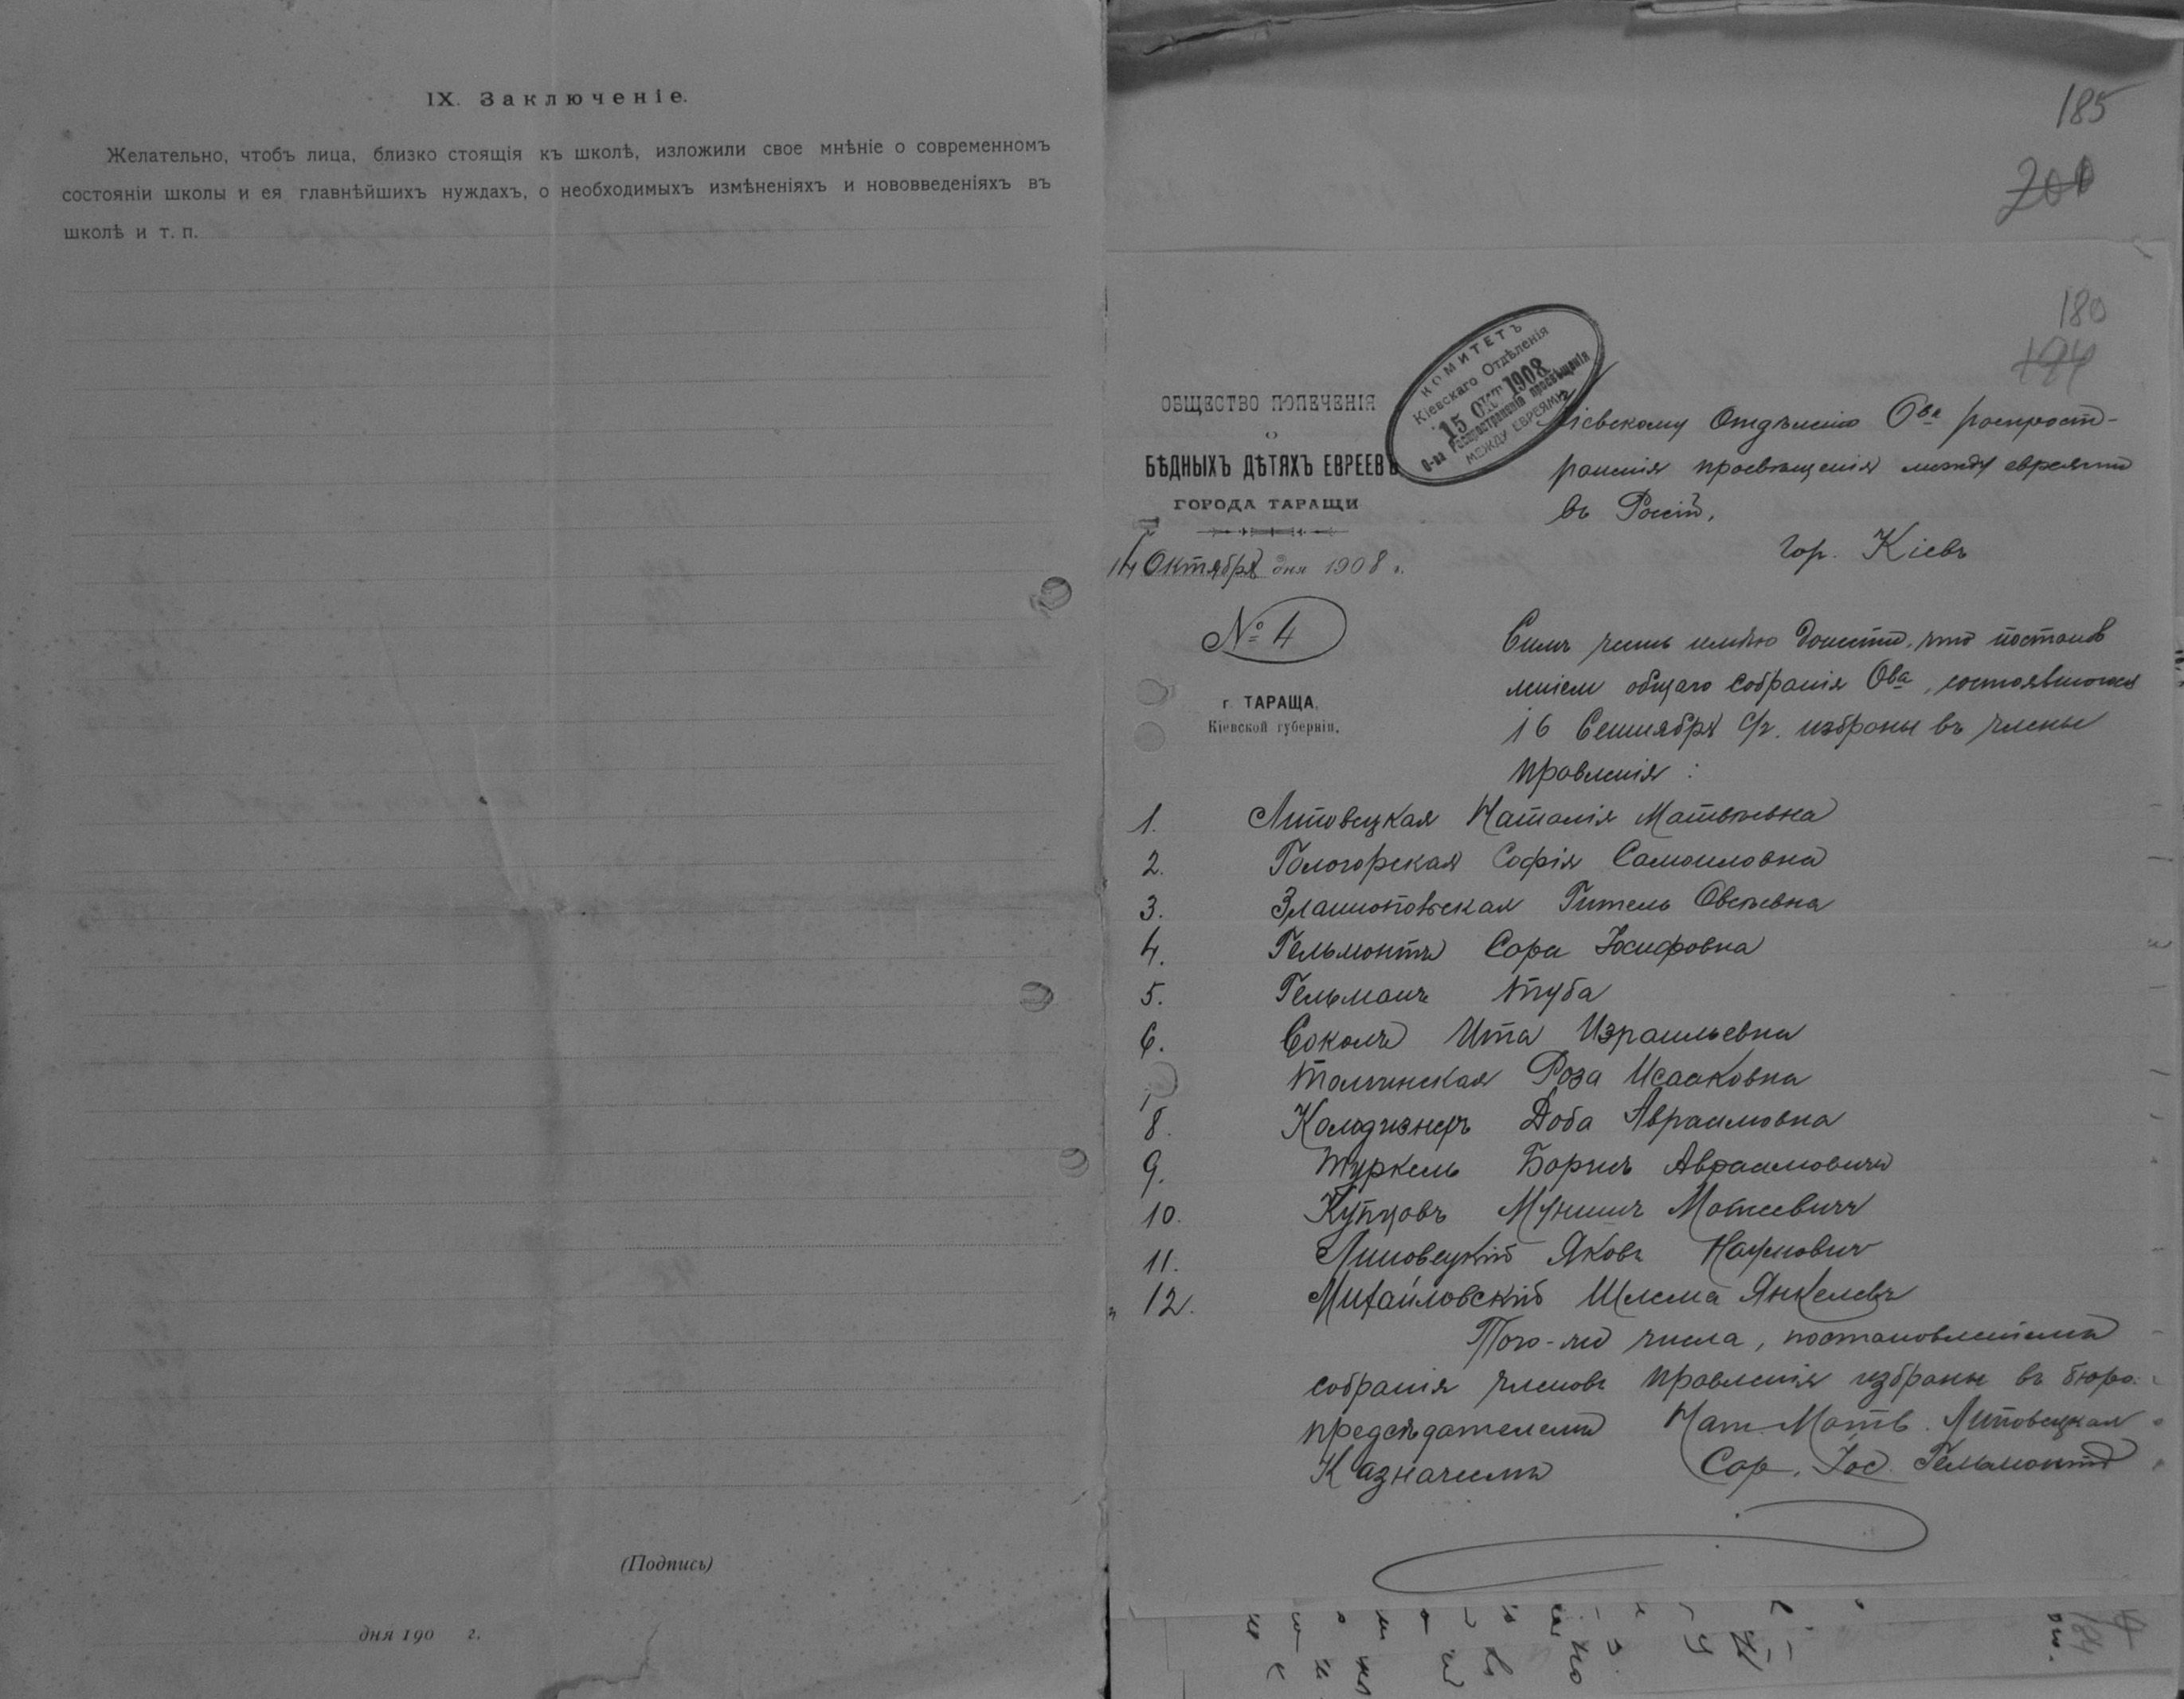 IX. Заключеніе.
Желательно, чтобъ лица, близко стоящія къ школѣ, изложили свое мнѣніе о современномъ
состояніи школы и ея главнѣйшихъ нуждахъ, о необходимыхъ измѣненіяхъ и нововведеніяхъ въ
школѣ и т. п.
(Подпись)
дня 190 г.
185
200
180
194
КОМИТЕТЪ
Кіевскаго Отдѣленія
15 ОКТ 1908
О-ва Распространенія просвѣщенія
МЕЖДУ ЕВРЕЯМИ
ОБЩЕСТВО ПОПЕЧЕНІЯ
О
БѢДНЫХЪ ДѢТЯХЪ ЕВРЕЕВЪ
ГОРОДА ТАРАЩИ
14 Октября дня 1908 г.
№ 4
г. ТАРАЩА,
Кіевской губерніи.
Кіевскому Отдѣленію О-ва распрост-
раненія просвѣщенія между евреями
въ Россіи,
Гор. Кіевъ
Симъ честь имѣю донести, что постанов
леніем общаго собранія Ова, состоявшагося
16 Сентября с/г. избраны въ члены
Правленія :
1. Липовецкая Наталія Матвѣевна
2. Гологорская Софія Самоиловна
3. Златопольская Гитель Овсѣевна
4. Гельмонтъ Сара Іосифовна
5. Гельманъ Туба
6. Соколъ Ита Израильевна
Толчинская Роза Исааковна
8. Колодизнеръ Доба Авраамовна
9. Туркель Борисъ Авраамовичъ
10. Купцовъ Мунишъ Мотьевичъ
11. Липовецкій Яковъ Наумовичъ
12. Михайловскій Шлема Янкелевъ
Того-же числа, постановленіемъ
собранія членовъ Правленія избраны въ бюро:
предсѣдателемъ Нат. Матв. Липовецкая
Казначеемъ Сар. Іос. Гельмонтъ